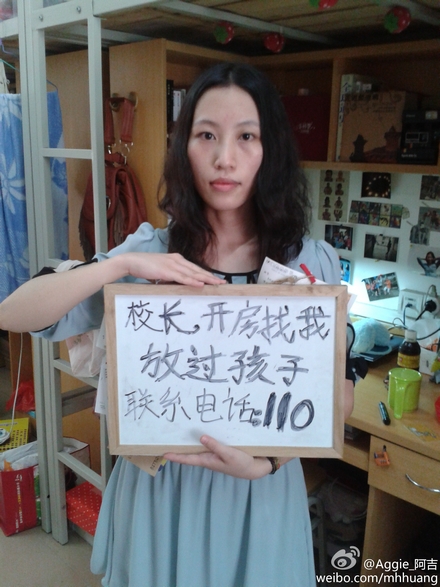 校长,开房找我
放过孩子
联系电话:110
@Aggie_阿吉
weibo.com/mhhuang